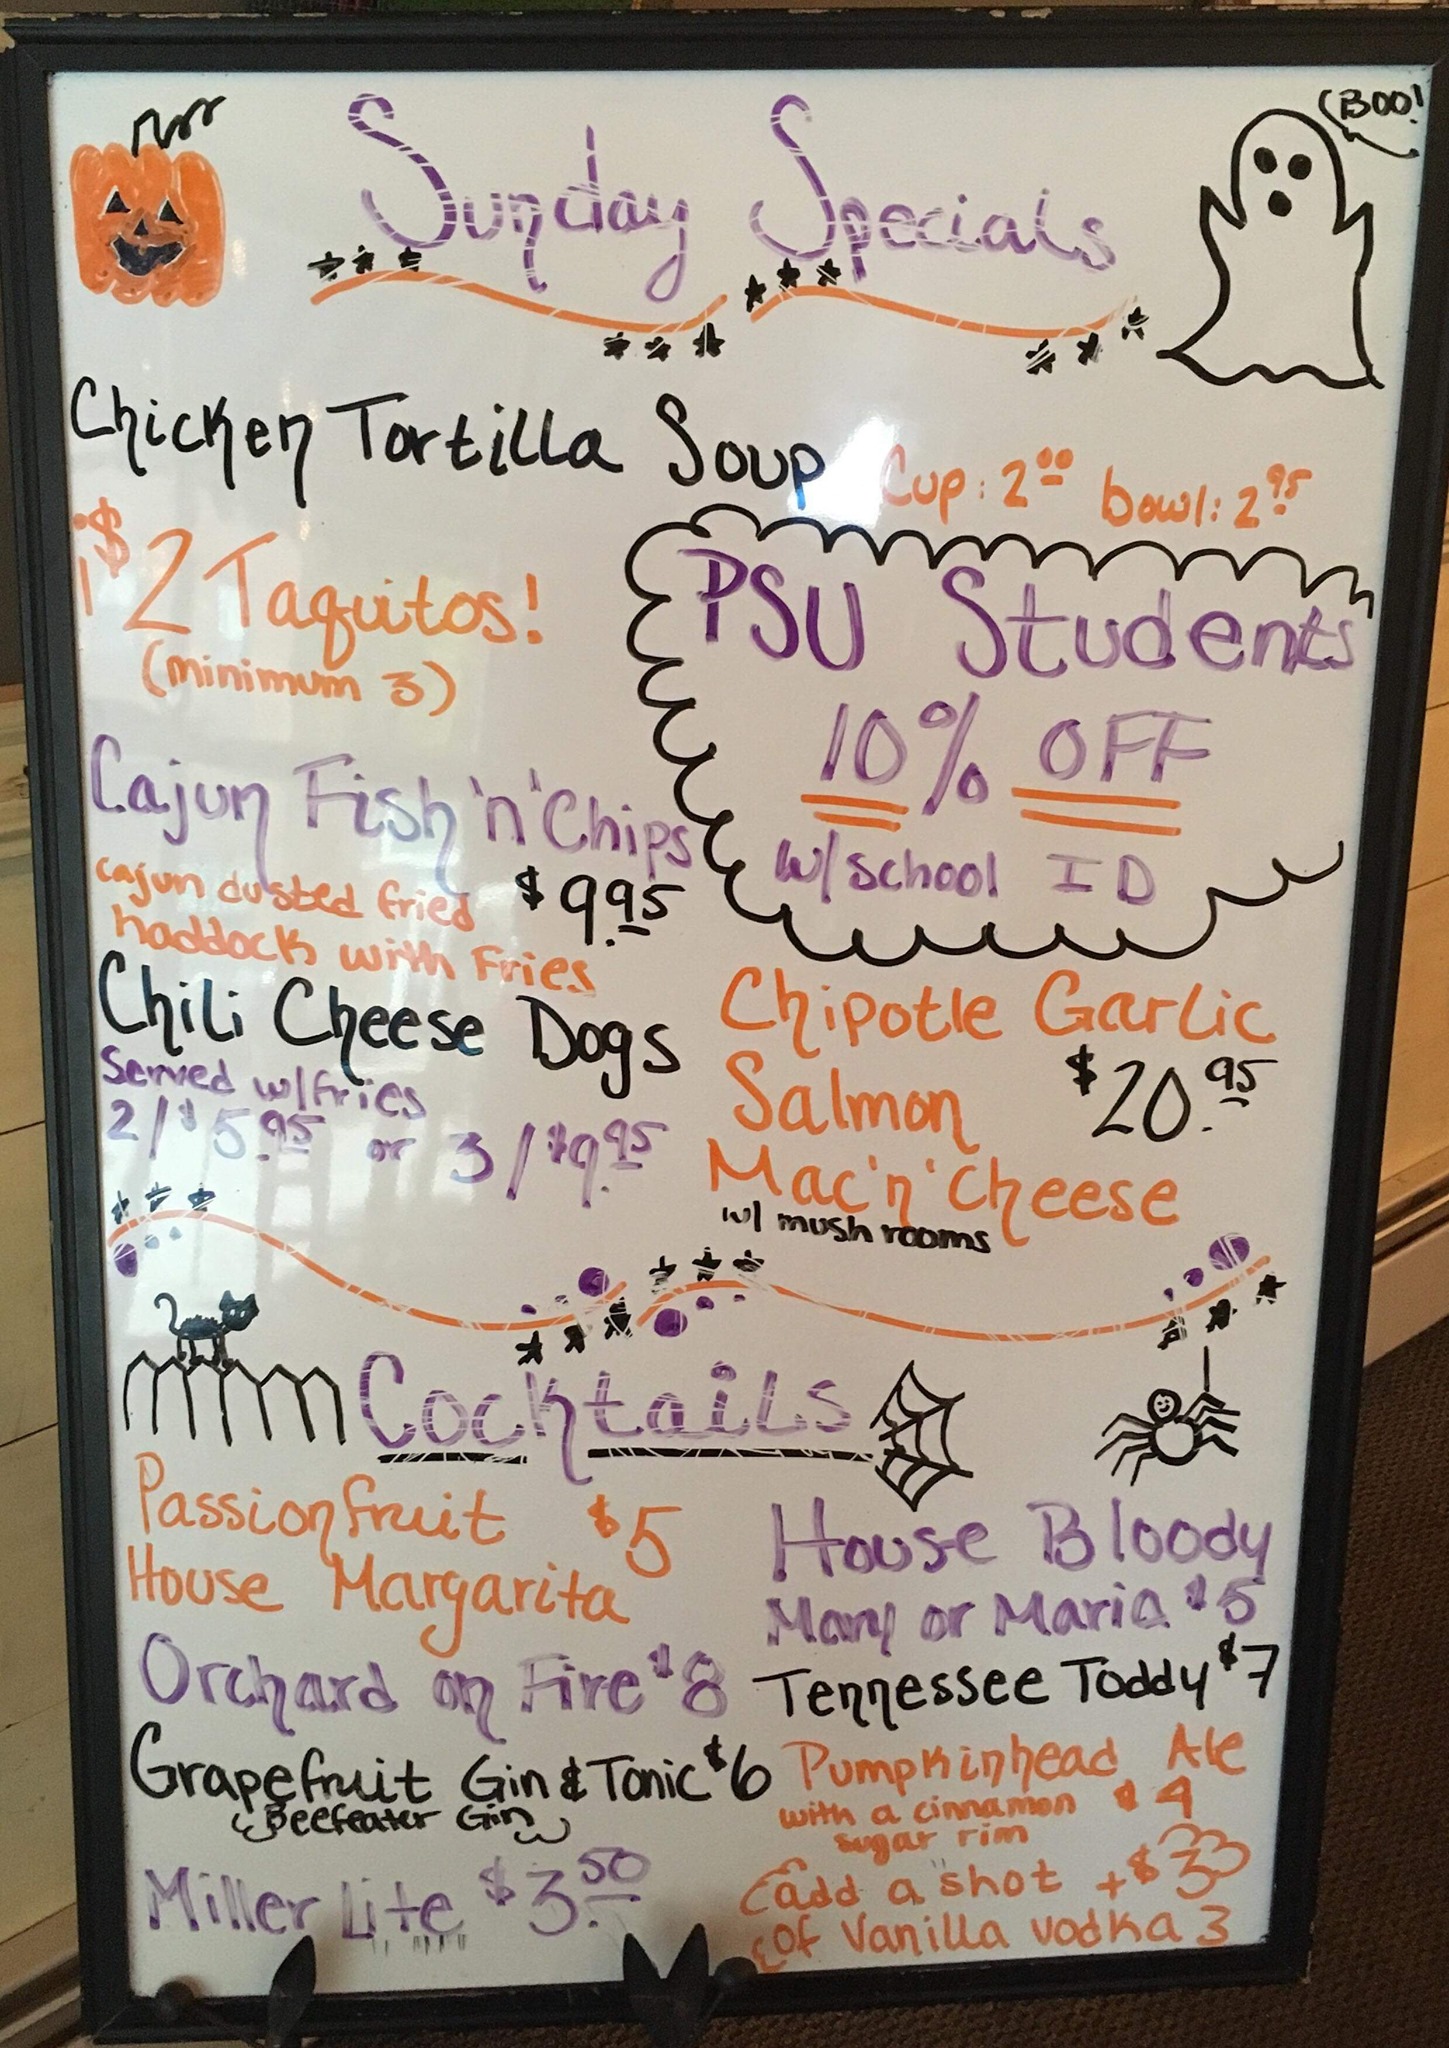 (BOO!
Sunday Specials
Chicken Tortilla Soup Cup: 2.00 bowl: 2.95
$2 Taquitos!
(minimum 3)
PSU Students
10% OFF
w/school ID
Cajun Fish 'n' Chips
cajun dusted fried $9.95
haddock with Fries
Chili Cheese Dogs
Served w/fries
2/$5.95 or 3/$9.95
Chipotle Garlic
Salmon $20.95
Mac 'n' Cheese
w/ mushrooms
Cocktails
Passionfruit $5
House Margarita
Orchard on Fire $8
Grapefruit Gin & Tonic $6
Beefeater Gin
Miller Lite $3.50
House Bloody
Mary or Maria $5
Tennessee Toddy $7
Pumpkinhead Ale
with a cinnamon $4
sugar rim
add a shot +$3
of Vanilla vodka